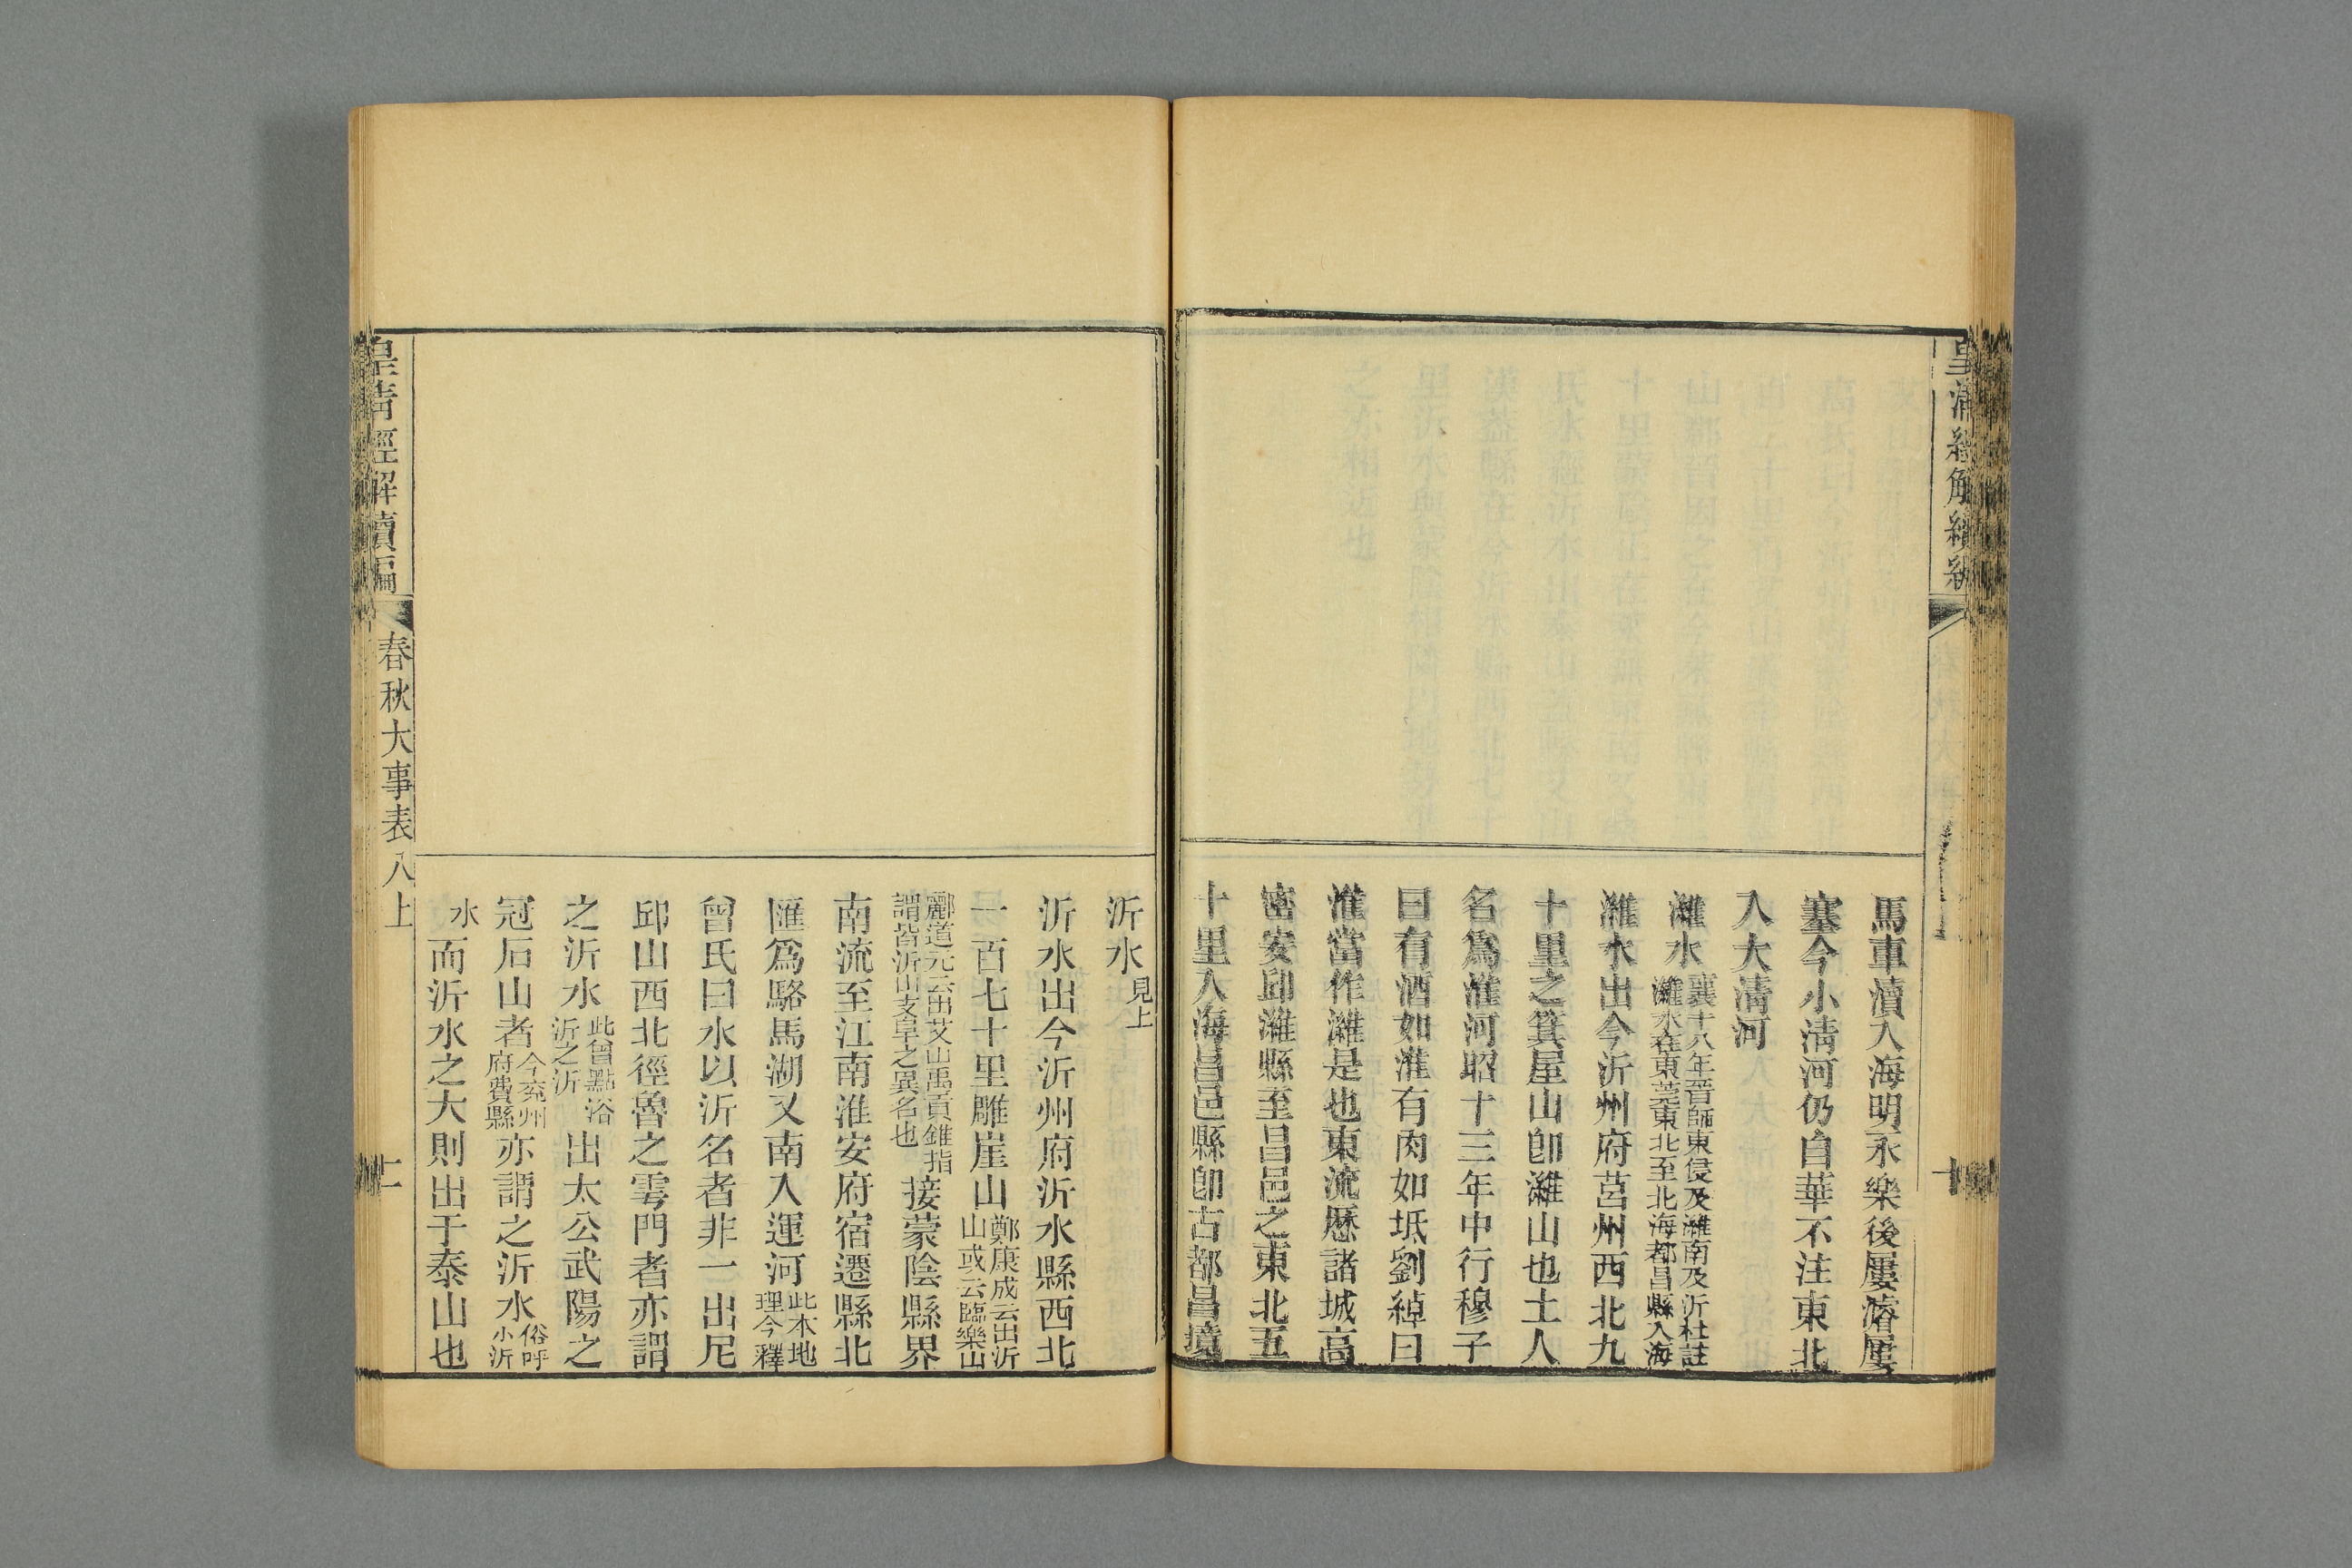 馬車瀆入海明永樂後屢濬屢
塞今小清河仍自華不注東北
入大清河
濰水襄十八年晉師東侵及濰南及沂杜註濰水在東莞東北至北海都昌縣入海
濰水出今沂州府莒州西北九
十里之箕屋山卽濰山也土人
名爲淮河昭十三年中行穆子
曰有酒如淮有肉如坻劉綽曰
淮當作濰是也東流歷諸城高
密安邱濰縣至昌邑之東北五
十里入海昌邑縣卽古都昌境
沂水見上
沂水出今沂州府沂水縣西北
一百七十里雕崖山鄭康成云出沂山或云臨樂山
酈道元云出艾山禹貢錐指謂皆沂山支阜之異名也接蒙陰縣界
南流至江南淮安府宿遷縣北
匯爲駱馬湖又南入運河此本地理今釋
曾氏曰水以沂名者非一出尼
邱山西北徑魯之雩門者亦謂
之沂水此曾點浴沂之沂出太公武陽之
冠石山者今兗州府費縣亦謂之沂水俗呼小沂
水而沂水之大則出于泰山也
皇清經解續編
春秋大事表八上